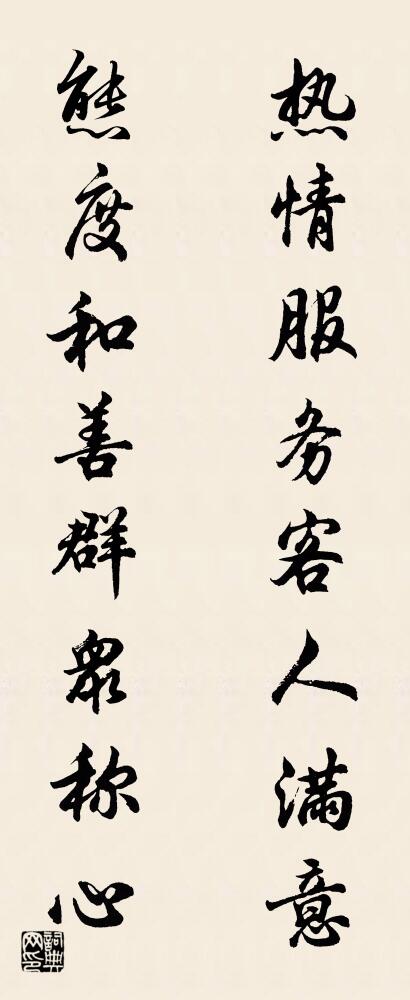 热情服务客人满意
态度和善群众称心
词典网印